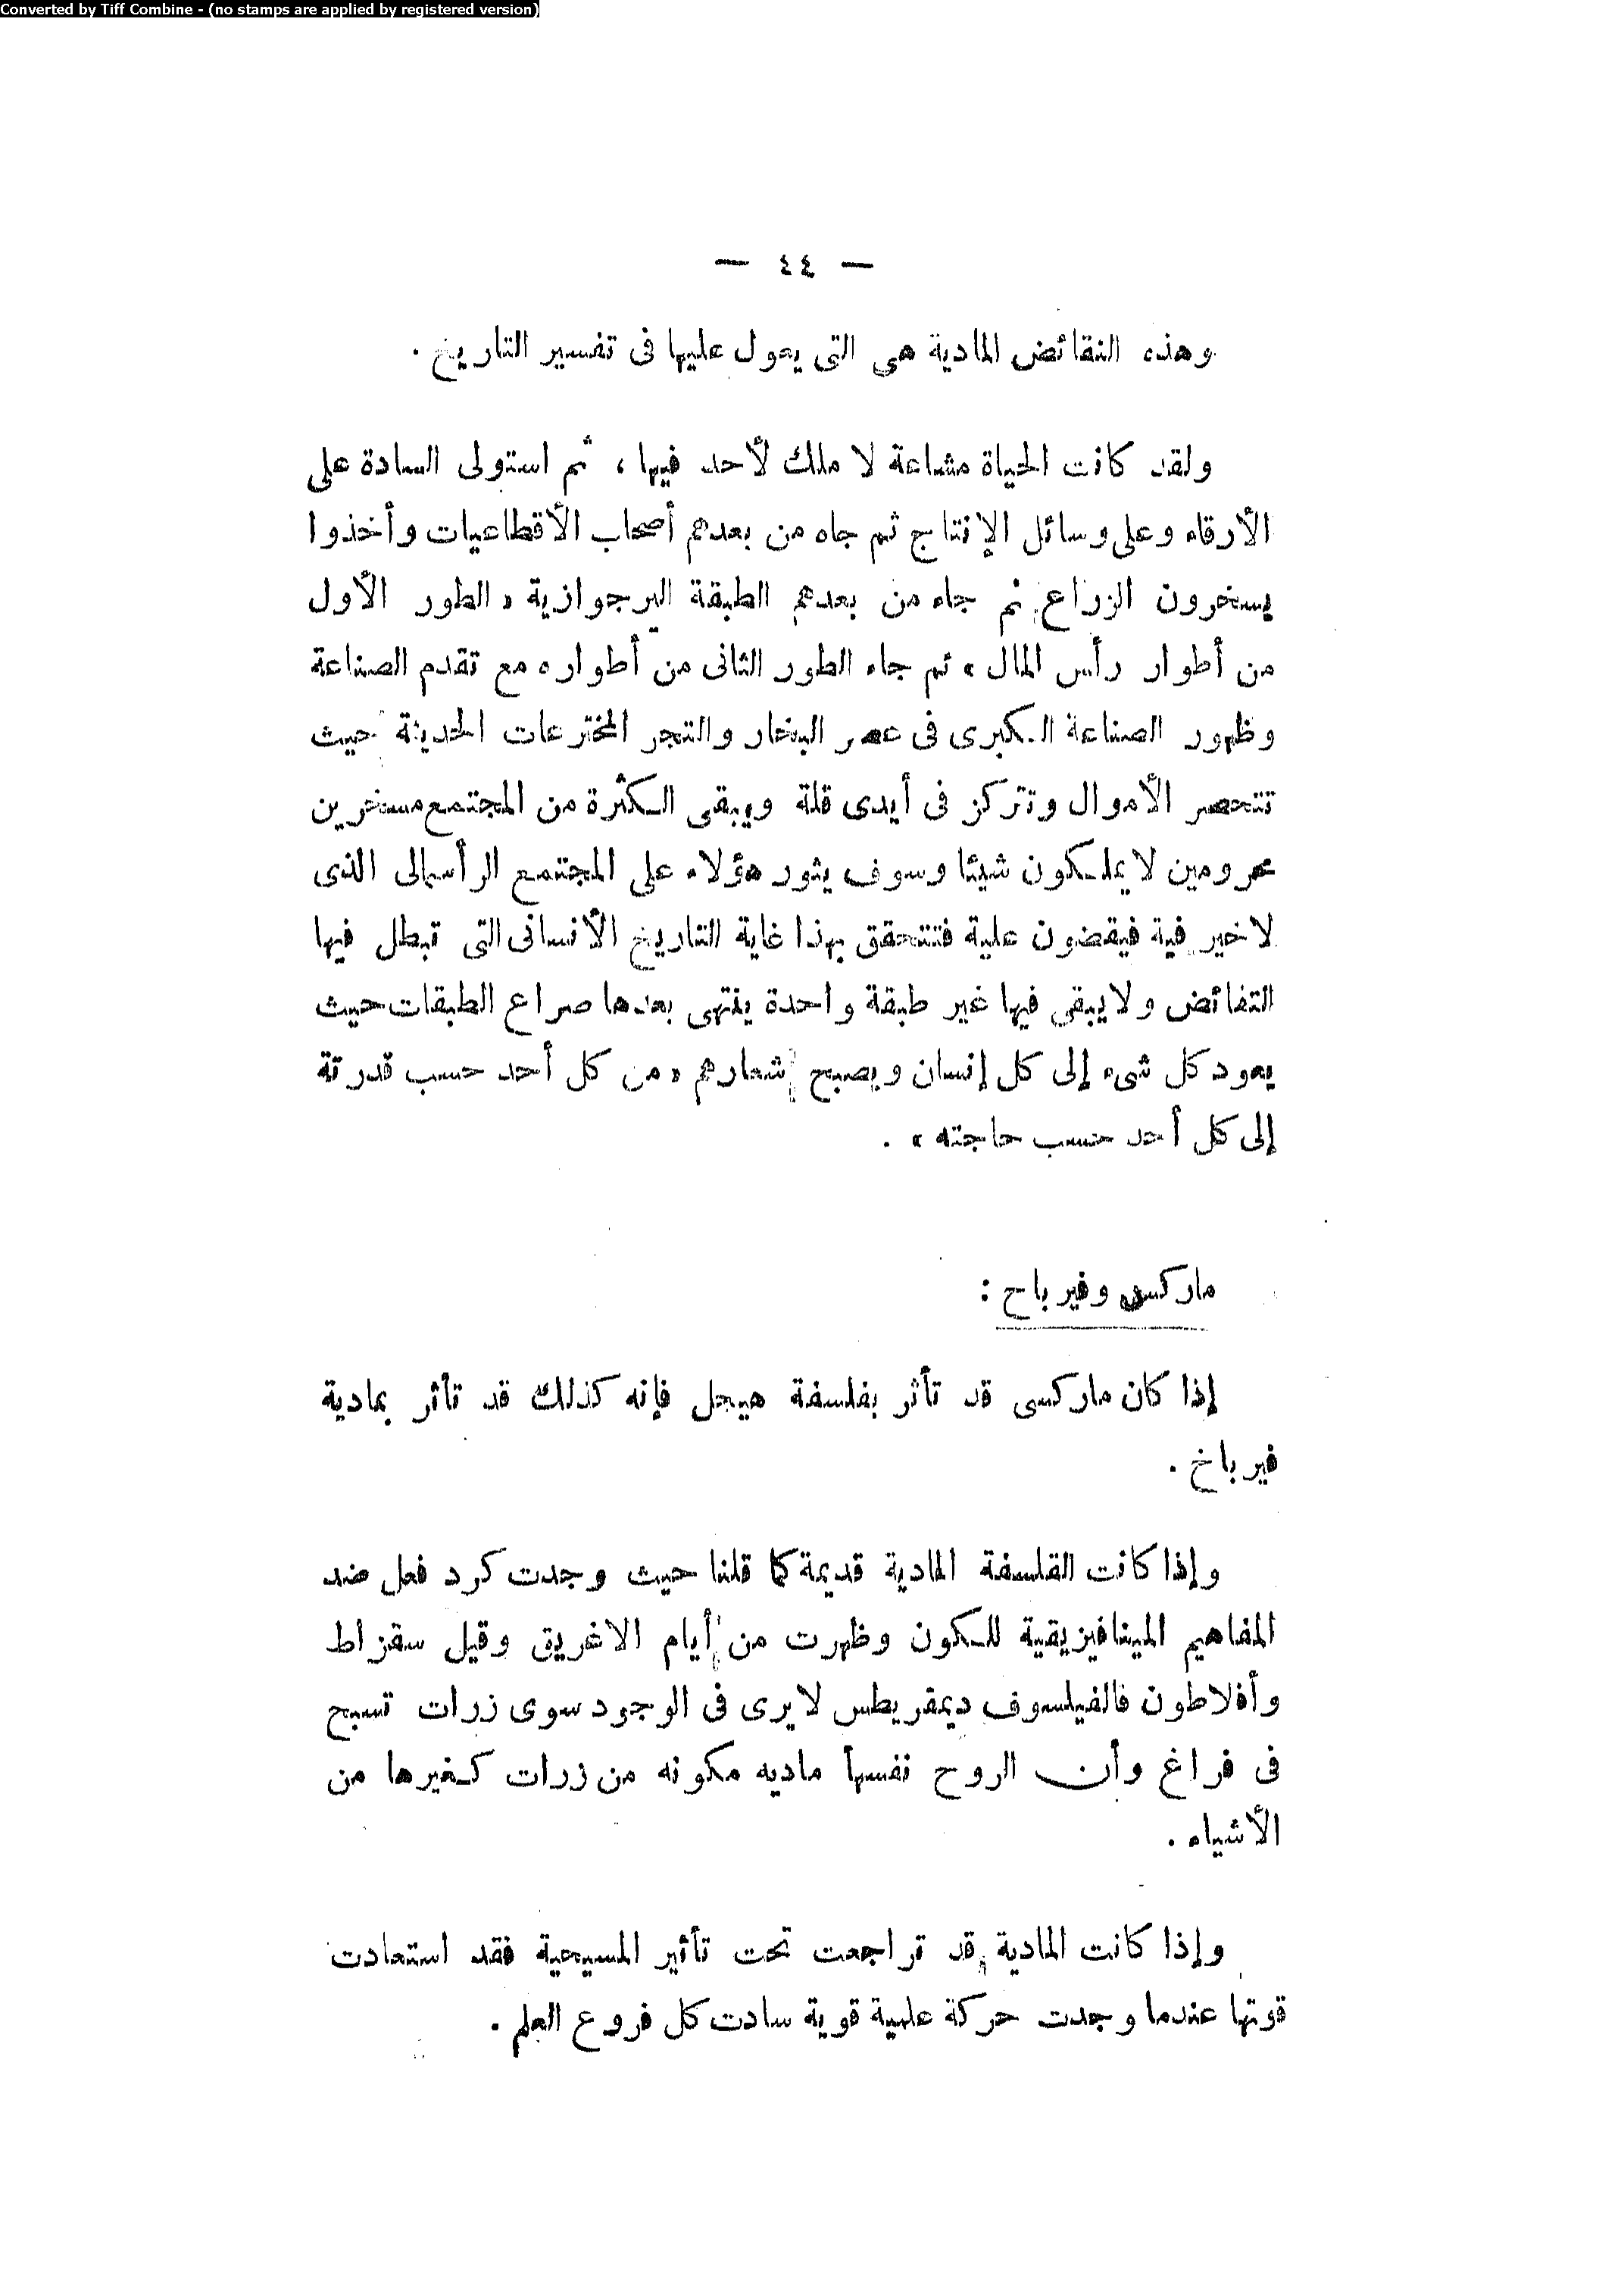 Converted by Tiff Combine - (no stamps are applied by registered version)
— ٤٤ —
وهذه النقائض المادية هى التى يعول عليها فى تفسير التاريخ .
ولقد كانت الحياة مشاعة لا ملك لأحد فيها ، ثم استولى السادة على
الأرقاء وعلى وسائل الإنتاج ثم جاء من بعدهم أصحاب الأقطاعيات وأخذوا
يسخرون الزراع ثم جاء من بعدهم الطبقة البرجوازية « الطور الأول
من أطوار رأس المال » ثم جاء الطور الثانى من أطواره مع تقدم الصناعة
وظهور الصناعة الكبرى فى عصر البخار والتجر المخترعات الحديثة حيث
تتحصر الأموال وتتركز فى أيدى قلة ويبقى الكثرة من المجتمع مسخرين
محرومين لا يملكون شيئا وسوف يثور هؤلاء على المجتمع الرأسمالى الذى
لاخير فية فيقضون علية فتتحقق بهذا غاية التاريخ الأنسانى التى تبطل فيها
التفائض ولايبقى فيها غير طبقة واحدة ينتهى بعدها صراع الطبقات حيث
يعود كل شىء إلى كل إنسان ويصبح شعارهم « من كل أحد حسب قدرتة
إلى كل أحد حسب حاجته » .
ماركس وفيرباح :
إذا كان ماركسى قد تأثر بفلسفة هيجل فإنه كذلك قد تأثر بمادية
فيرباخ .
وإذا كانت القلسفة المادية قديمة كما قلنا حيث وجدت كرد فعل ضد
المفاهيم الميتافيزيقية للكون وظهرت من أيام الاغريق وقيل سقزاط
وأفلاطون فالفيلسوف ديمقريطس لايرى فى الوجود سوى زرات تسبح
فى فراغ وأن الروح نفسها ماديه مكونه من زرات كغيرها من
الأشياء .
وإذا كانت المادية قد تراجعت تحت تأثير المسيحية فقد استعادت
قوتها عندما وجدت حركة علمية قوية سادت كل فروع العلم .